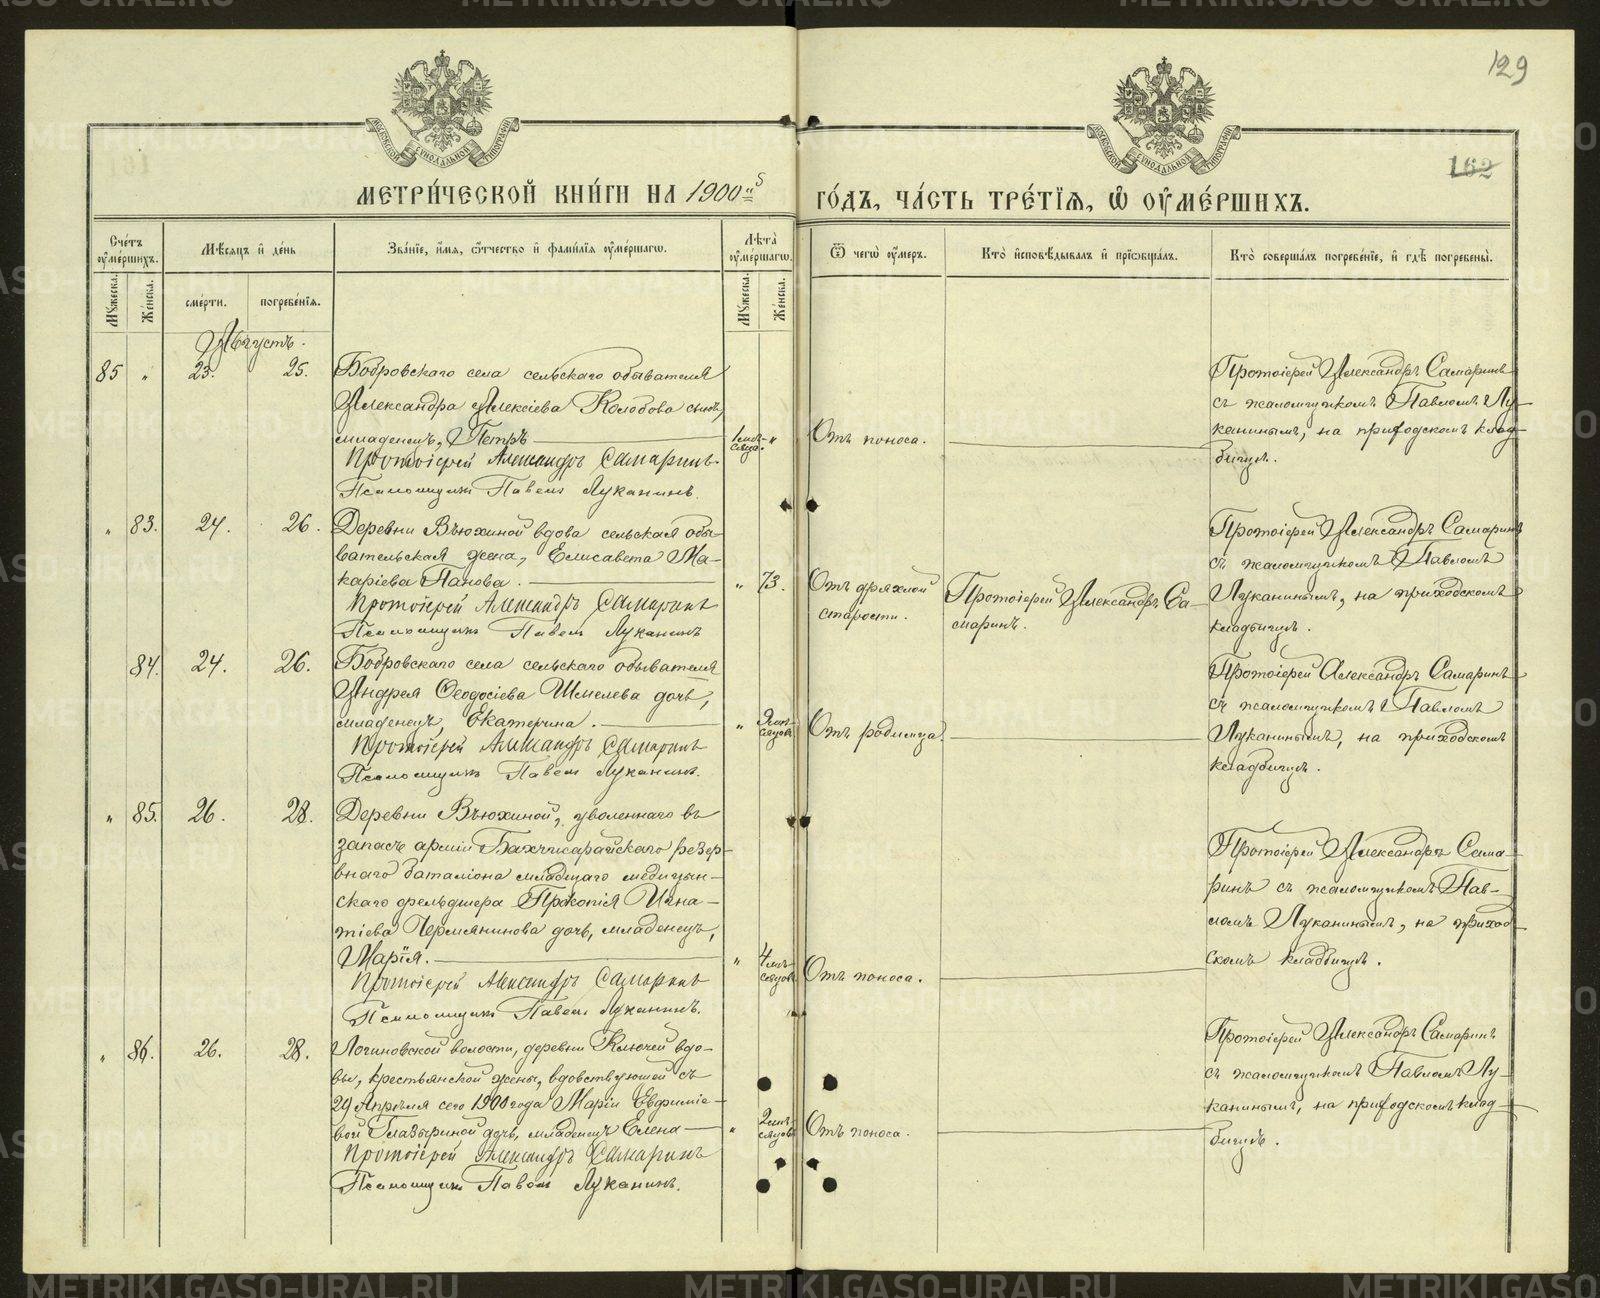 129
162
МЕТРИ́ЧЕСКОЙ КНИ́ГИ НА 1900й
ГО́ДЪ, ЧА́СТЬ ТРЕ́ТІѦ, Ѽ ОУ҆МЕ́РШИХЪ.
Сче́тъ оу҆ме́ршихъ.
Мꙋжеска.
Же́нска.
Мѣ́сѧцъ и҆ де́нь
сме́рти.
погребе́нїѧ.
Зва́нїе, и҆́мѧ, ѻ҆́тчество и҆ фами́лїѧ оу҆ме́ршагѡ.
Лѣ́та оу҆ме́ршагѡ.
Мꙋжеска.
Же́нска.
Ѿ чегѡ̀ оу҆́меръ.
Кто̀ и҆сповѣ́дывалъ и҆ прїѡбща́лъ.
Кто̀ соверша́лъ погребе́нїе, и҆ гдѣ̀ погребены̀.
Августъ.
85 „ 23. 25.
Бобровскаго села сельскаго обывателя
Александра Алексіева Колобова сынъ,
младенецъ, Петръ
Протоіерей Александръ Самаринъ.
Псаломщикъ Павелъ Луканинъ.
1 мѣ-
сяца. „
Отъ поноса.
Протоіерей Александръ Самаринъ
съ псаломщикомъ Павломъ Лу-
канинымъ, на приходскомъ клад-
бищѣ.
„ 83. 24. 26.
Деревни Вьюхиной вдова сельская обы-
вательская жена, Елисавета Ма-
каріева Панова.
Протоіерей Александръ Самаринъ
Псаломщикъ Павелъ Луканинъ
„ 73.
Отъ дряхлой
старости.
Протоіерей Александръ Са-
маринъ.
Протоіерей Александръ Самаринъ
съ псаломщикомъ Павломъ
Луканинымъ, на приходскомъ
кладбищѣ.
84. 24. 26.
Бобровскаго села сельскаго обывателя
Андрея Ѳеодосіева Шмелева дочь,
младенецъ, Екатерина.
Протоіерей Александръ Самаринъ
Псаломщикъ Павелъ Луканинъ.
„ 9 мѣ-
сяцовъ
Отъ родимца.
Протоіерей Александръ Самаринъ
съ псаломщикомъ Павломъ
Луканинымъ, на приходскомъ
кладбищѣ.
„ 85. 26. 28.
Деревни Вьюхиной, уволеннаго въ
запасъ арміи Бахчисарайскаго резер-
внаго баталіона младшаго медицын-
скаго фельдшера Прокопія Игна-
тіева Чермянинова дочь, младенецъ,
Марія.
Протоіерей Александръ Самаринъ
Псаломщикъ Павелъ Луканинъ.
„ 4 мѣ-
сяцовъ
Отъ поноса.
Протоіерей Александръ Сама-
ринъ съ псаломщикомъ Пав-
ломъ Луканинымъ, на приход-
скомъ кладбищѣ.
„ 86. 26. 28.
Логиновской волости, деревни Ключей вдо-
вы, крестьянской жены, вдовствующей съ
29 Апрѣля сего 1900 года Маріи Евфиміе-
вой Глазыриной дочь, младенецъ Елена
Протоіерей Александръ Самаринъ
Псаломщикъ Павелъ Луканинъ.
„ 2 мѣ-
сяцовъ
Отъ поноса.
Протоіерей Александръ Самаринъ
съ псаломщикомъ Павломъ Лу-
канинымъ, на приходскомъ клад-
бищѣ.
METRIKI.GASO-URAL.RU